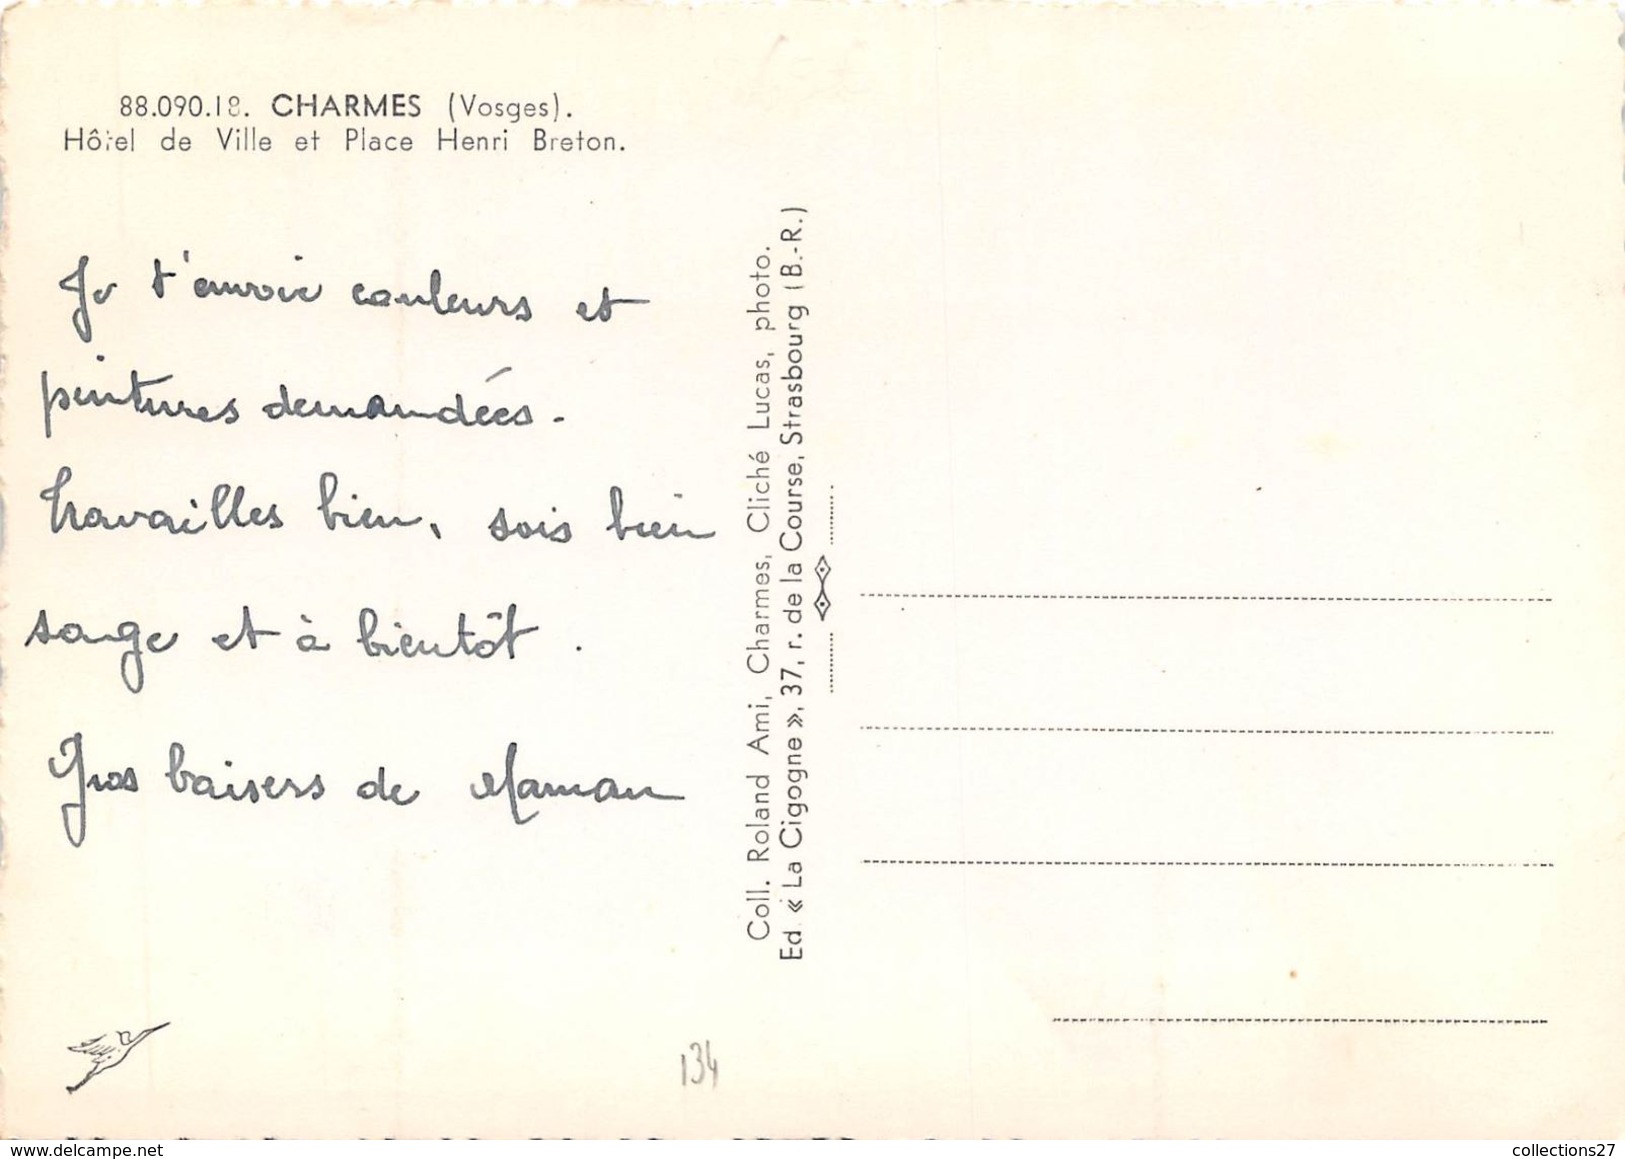 88.090.18. CHARMES (Vosges).
Hôtel de Ville et Place Henri Breton.
Je t'envoie couleurs et
peintures demandées.
travailles bien, sois bien
sage et à bientôt.
Gros baisers de Maman
Coll. Roland Ami, Charmes, Cliché Lucas, photo.
Ed. « La Cigogne », 37, r. de la Course, Strasbourg (B.-R.)
134
collections27